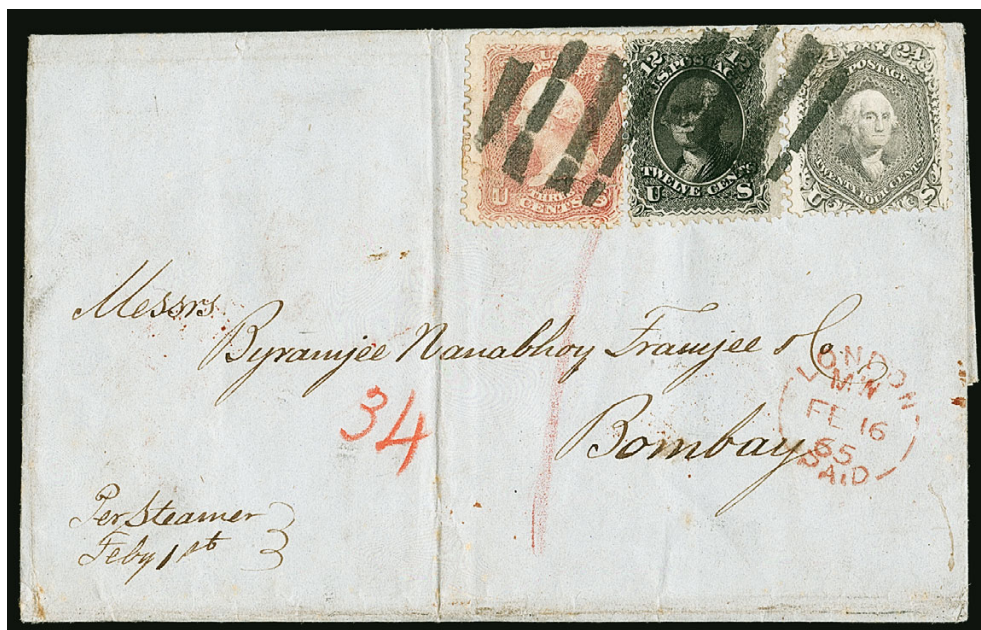 U.S. POSTAGE
THREE
CENTS
U S
12 12
U.S. POSTAGE
TWELVE CENTS
U S
24 24
U.S. POSTAGE
TWENTY FOUR CENTS
U S
Messrs
Byramjee Nanabhoy Framjee & Co
Bombay
34
LONDON
MN
FE 16
65
PAID
Per Steamer
Feby 1st